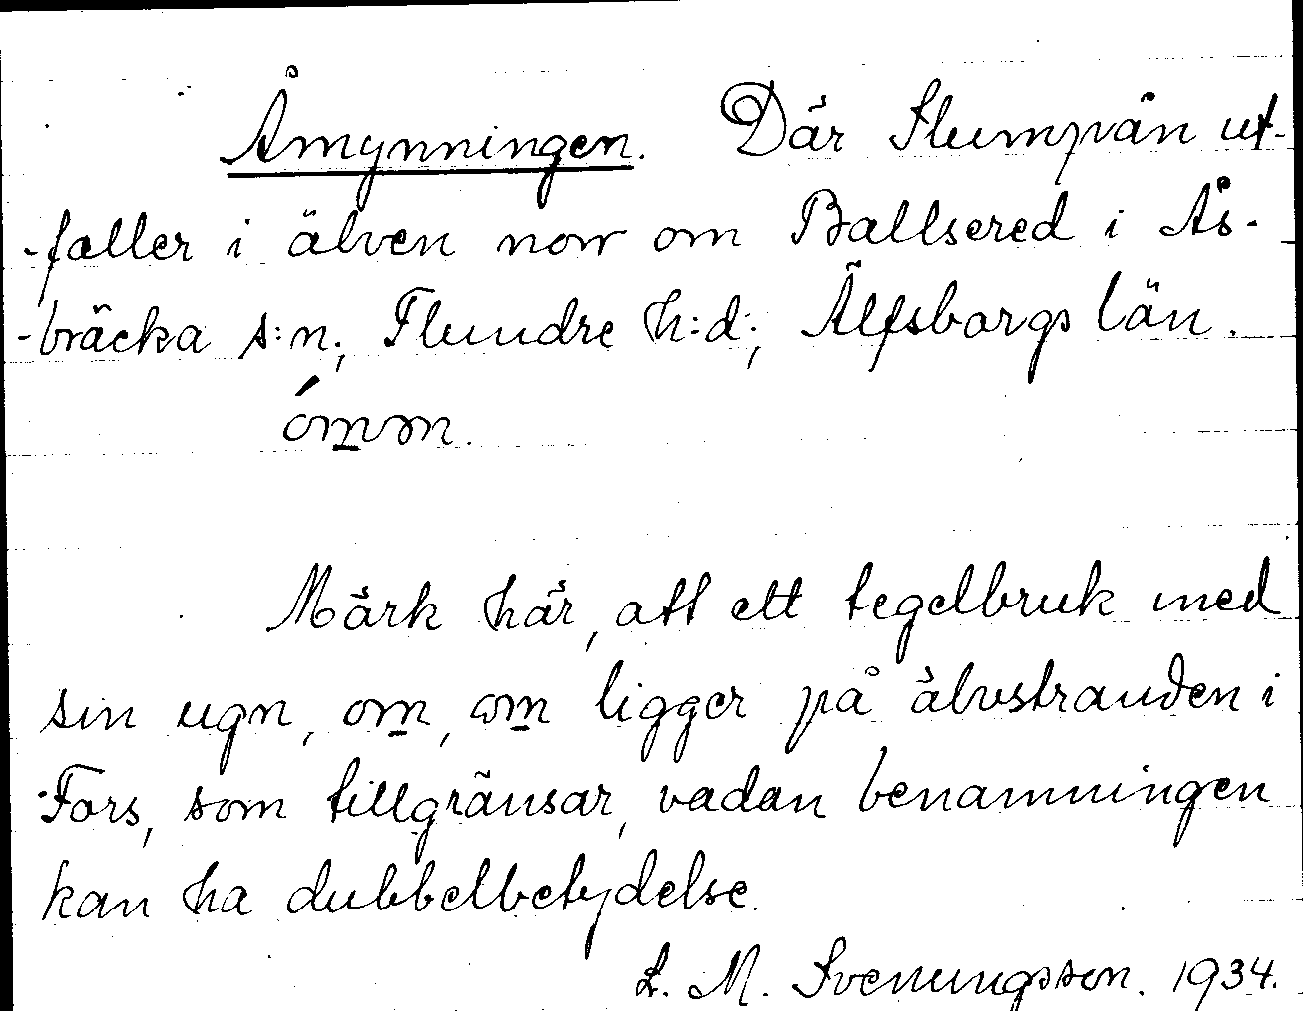 Åmynningen. Där Slumpån ut-
-faller i älven norr om Ballsered i Ås-
-bräcka s:n; Flundre h:d; Älfsborgs län.
ómm.
Märk här, att ett tegelbruk med
sin ugn, om, om ligger på älvstranden i
Fors, som tillgränsar, vadan benämningen
kan ha dubbelbetydelse.
L. M. Svenungsson. 1934.